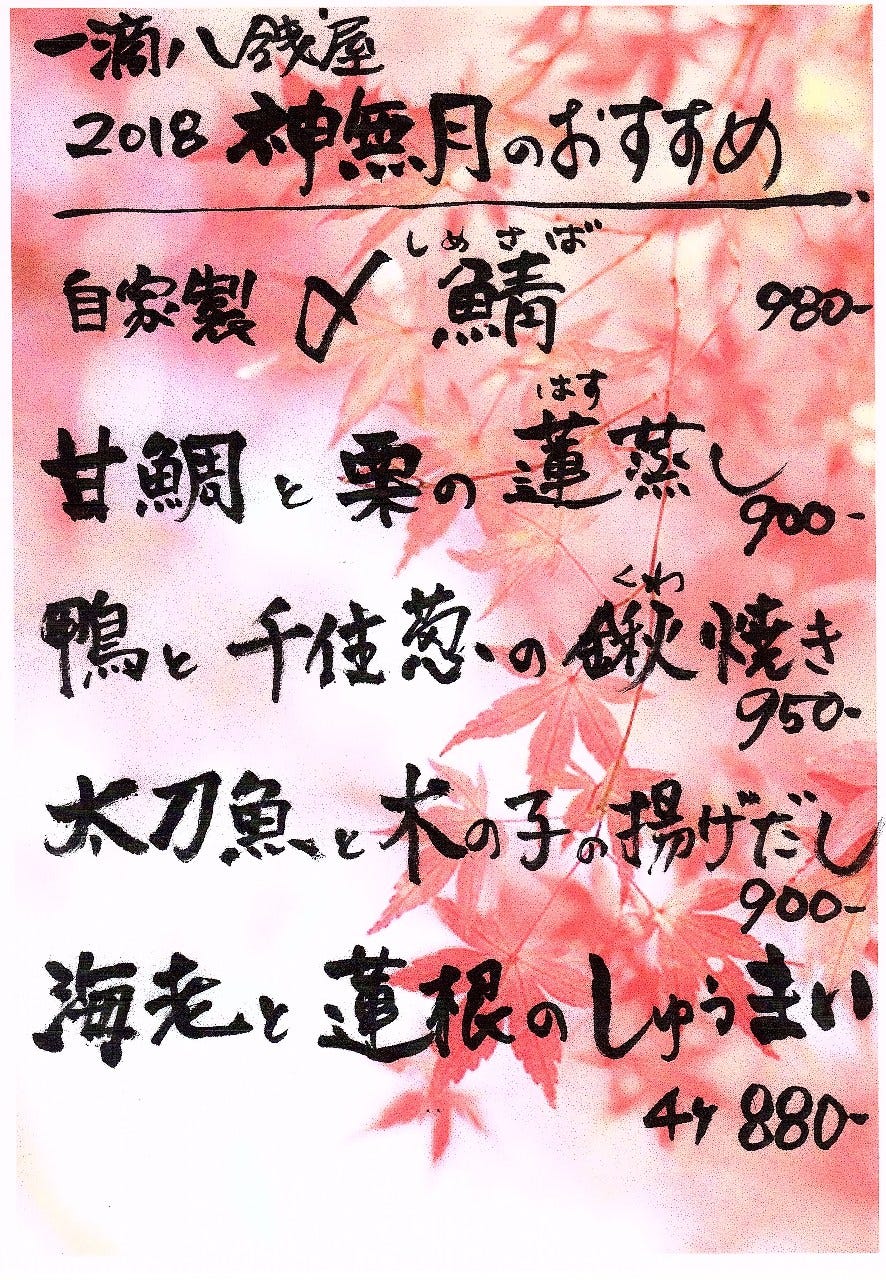 一滴八銭屋
2018 神無月のおすすめ
しめさば
自家製 〆鯖 980-
はす
甘鯛と栗の蓮蒸し
900-
くわ
鴨と千住葱の鍬焼き
950-
太刀魚と木の子の揚げだし
900-
海老と蓮根のしゅうまい
4ケ 880-